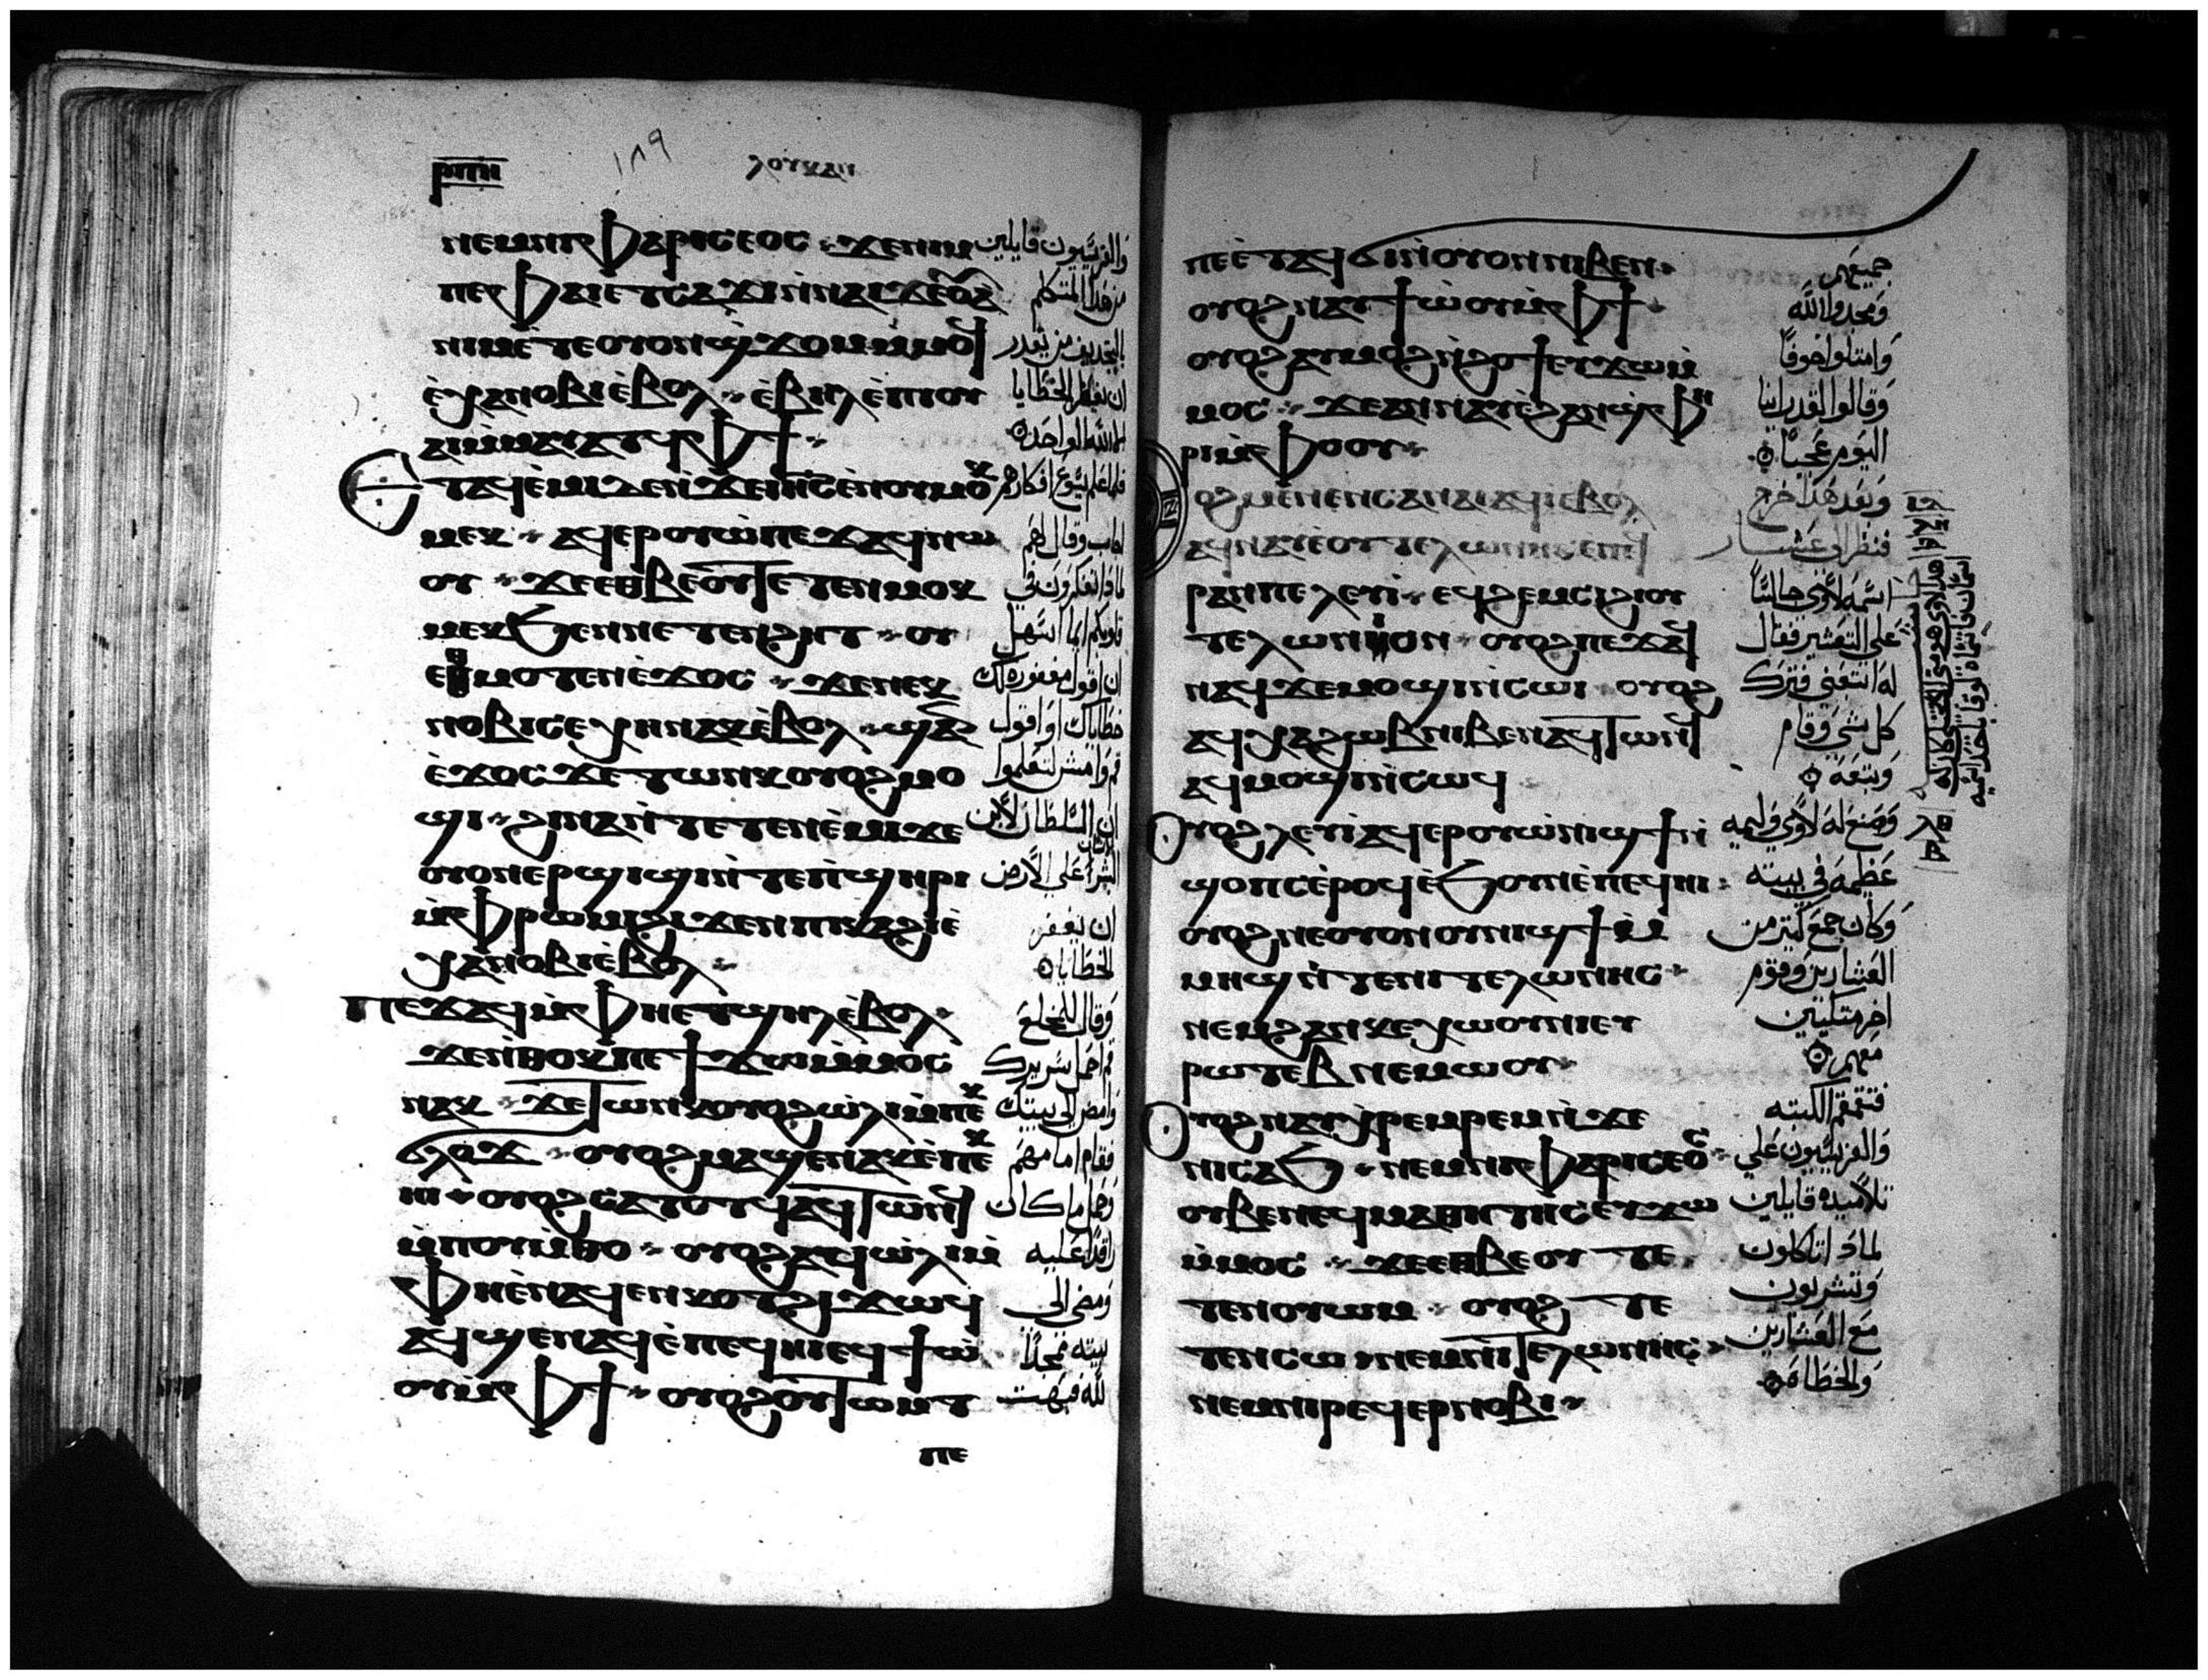 ⲣⲡⲏ
١٨٩
ⲗⲟⲩⲕⲁⲛ
ⲛⲉⲙⲛⲓⲫⲁⲣⲓⲥⲉⲟⲥ ϫⲉⲛⲓⲙ
ⲡⲉⲫⲁⲓⲉⲧⲥⲁϫⲓⲛ̀ⲛⲁⲓϫⲉⲟⲩⲁ̀
ⲛⲓⲙⲉ̀ⲧⲉⲟⲩⲟⲛϣ̀ϫⲟⲙⲙ̀ⲙⲟϥ
ⲉ̀ⲭⲁⲛⲟⲃⲓⲉ̀ⲃⲟⲗ ⲉ̀ⲃⲏⲗⲉ̀ⲡⲓⲟⲩ
ⲁⲓⲙ̀ⲙⲁⲩⲁⲧϥⲫϯ
ⲉⲧⲁϥⲉ̀ⲙⲓⲇⲉⲛ̀ϫⲉⲓⲏ̅ⲥ̅ⲉ̀ⲛⲟⲩⲙⲟⲕ
ⲙⲉⲕ ⲁϥⲉⲣⲟⲩⲱ̀ⲡⲉϫⲁϥⲛⲱ
ⲟⲩ ϫⲉⲉⲑⲃⲉⲟⲩⲧⲉⲧⲉⲛⲙⲟⲕ
ⲙⲉⲕϧⲉⲛⲛⲉⲧⲉⲛϩⲏⲧ ⲟⲩ
ⲉⲑⲙⲟⲧⲉⲛⲉ̀ϫⲟⲥ ϫⲉⲛⲉⲕ
ⲛⲟⲃⲓⲥⲉⲭⲏⲛⲁⲕⲉ̀ⲃⲟⲗ ϣⲁⲛ
ⲉ̀ϫⲟⲥϫⲉⲧⲱⲛⲕⲟⲩⲟϩⲙⲟ
ϣⲓ ϩⲓⲛⲁⲛ̀ⲧⲉⲧⲉⲛⲉ̀ⲙⲓϫⲉ
ⲟⲩⲟⲛⲉⲣϣⲓϣⲓⲛ̀ⲧⲉⲡ̀ϣⲏⲣⲓ
ⲙ̀ⲫⲣⲱⲙⲓϩⲓϫⲉⲛⲡⲕⲁϩⲓⲉ̀
ⲭⲁⲛⲟⲃⲓⲉ̀ⲃⲟⲗ
ⲡⲉϫⲁϥⲙ̀ⲫⲏⲉⲧϣⲏⲗⲉ̀ⲃⲟⲗ
ϫⲉⲛ̀ⲑⲟⲕⲡⲉϯϫⲱⲙ̀ⲙⲟⲥ
ⲛⲁⲕ ϫⲉⲧⲱⲛⲕⲟⲩⲟϩⲱ̀ⲗⲓⲙ̀ⲡⲉⲕ
ϭⲗⲟϫ ⲟⲩⲟϩⲙⲁϣⲉⲛⲁⲕⲉ̀ⲡⲉⲕ
ⲏⲓ ⲟⲩⲟϩⲥⲁⲧⲟⲧϥⲁϥⲧⲱⲛϥ
ⲙ̀ⲡⲟⲩⲙ̀ⲑⲟ ⲟⲩⲟϩⲁϥⲱ̀ⲗⲓⲙ̀
ⲫⲏⲉ̀ⲛⲁϥⲉⲛⲕⲟⲧϩⲓϫⲱϥ
ⲁϥϣⲉⲛⲁϥⲉ̀ⲡⲉϥⲏⲓⲉϥϯⲱ̀
ⲟⲩⲙ̀ⲫϯ ⲟⲩⲟϩⲟⲩⲧⲱⲙⲧ
ⲡⲉ
والفريسيون قايلين
من هذا المتكلم
بالتجديف من يقدر
ان يغفر الخطايا
الا الله الواحد
فلما علم يسوع افكارهم
اجاب وقال لهم
لماذا تفكرون في
قلوبكم ايما اسهل
ان اقول مغفوره لك
خطاياك او اقول
قم وامش لتعلموا
ان السلطان لابن
البشر على الارض
ان يغفر
الخطايا
وقال للمخلع
قم احمل سريرك
وامض الى بيتك
فقام امامهم
وحمل ما كان
راقدا عليه
ومضى الى
بيته ممجدا
لله فبهت
ⲡⲉⲉ̀ⲧⲁϥϭⲓⲛ̀ⲟⲩⲟⲛⲛⲓⲃⲉⲛ
ⲟⲩⲟϩⲛⲁⲩϯⲱ̀ⲟⲩⲙ̀ⲫϯ
ⲟⲩⲟϩⲁⲩⲙⲟϩⲛ̀ϩⲟϯⲉⲩϫⲱⲙ̀
ⲙⲟⲥ ϫⲉⲁⲛⲛⲁⲩⲉ̀ϩⲁⲛϣ̀ⲫⲏ
ⲣⲓⲙ̀ⲫⲟⲟⲩ
ⲟϩⲙⲉⲛⲉⲛⲥⲁⲛⲁⲓⲁϥⲓⲉ̀ⲃⲟⲗ
ⲁϥⲛⲁⲩⲉ̀ⲟⲩⲧⲉⲗⲱⲛⲏⲥⲉⲡⲉϥ
ⲣⲁⲛⲡⲉⲗⲉⲩⲓ̀ ⲉϥϩⲉⲙⲥⲓϩⲓⲟⲩ
ⲧⲉⲗⲱⲛⲓⲟⲛ ⲟⲩⲟϩⲡⲉϫⲁϥ
ⲛⲁϥϫⲉⲙⲟϣⲓⲛ̀ⲥⲱⲓ ⲟⲩⲟϩ
ⲁϥⲭⲁϩⲱⲃⲛⲓⲃⲉⲛⲁϥⲧⲱⲛϥ
ⲁϥⲙⲟϣⲓⲛ̀ⲥⲱϥ
ⲟⲩⲟϩⲗⲉⲩⲓ̀ⲁϥⲉⲣⲟⲩⲛ̀ⲓϣϯⲛ̀
ϣⲟⲡⲥⲉ̀ⲣⲟϥⲉ̀ϧⲟⲩⲛⲉ̀ⲡⲉϥⲏⲓ
ⲟⲩⲟϩⲛⲉⲟⲩⲟⲛⲟⲩⲛⲓϣϯⲙ̀
ⲙⲏϣⲛ̀ⲧⲉⲛⲓⲧⲉⲗⲱⲛⲏⲥ
ⲛⲉⲙϩⲁⲛⲕⲉⲭⲱⲟⲩⲛⲓⲉⲩ
ⲣⲱⲧⲉⲃⲛⲉⲙⲱⲟⲩ
ⲟⲩⲟϩⲛⲁⲩⲭⲣⲉⲙⲣⲉⲙⲛ̀ϫⲉ
ⲛⲓⲥⲁϧ ⲛⲉⲙⲛⲓⲫⲁⲣⲓⲥⲉⲟⲥ
ⲟⲩⲃⲉⲛⲉϥⲙⲁⲑⲏⲧⲏⲥⲉⲩϫⲱ
ⲙ̀ⲙⲟⲥ ϫⲉⲉⲑⲃⲉⲟⲩ ⲧⲉ
ⲧⲉⲛⲟⲩⲱⲙ ⲟⲩⲟϩ ⲧⲉ
ⲧⲉⲛⲥⲱ ⲛⲉⲙⲛⲓⲧⲉⲗⲱⲛⲏⲥ
ⲛⲉⲙⲛⲓⲣⲉϥⲉⲣⲛⲟⲃⲓ
جميعهم
ومجدوا الله
وامتلوا خوفا
وقالوا لقد راينا
اليوم عجبا
وبعد هذا خرج
فنظر الى عشار
اسمه لاوي جالسا
على التعشير فقال
له اتبعني فترك
كل شي وقام
وتبعه
وصنع له لاوي وليمه
عظيمه في بيته
وكان جمع كثير من
العشارين وقوم
اخر متكيين
معهم
فتقمقم الكتبه
والفريسيون على
تلاميذه قايلين
لماذا تاكلون
وتشربون
مع العشارين
والخطاه